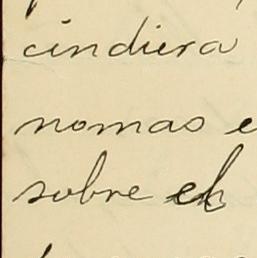 cindiera
nomas e
sobre el